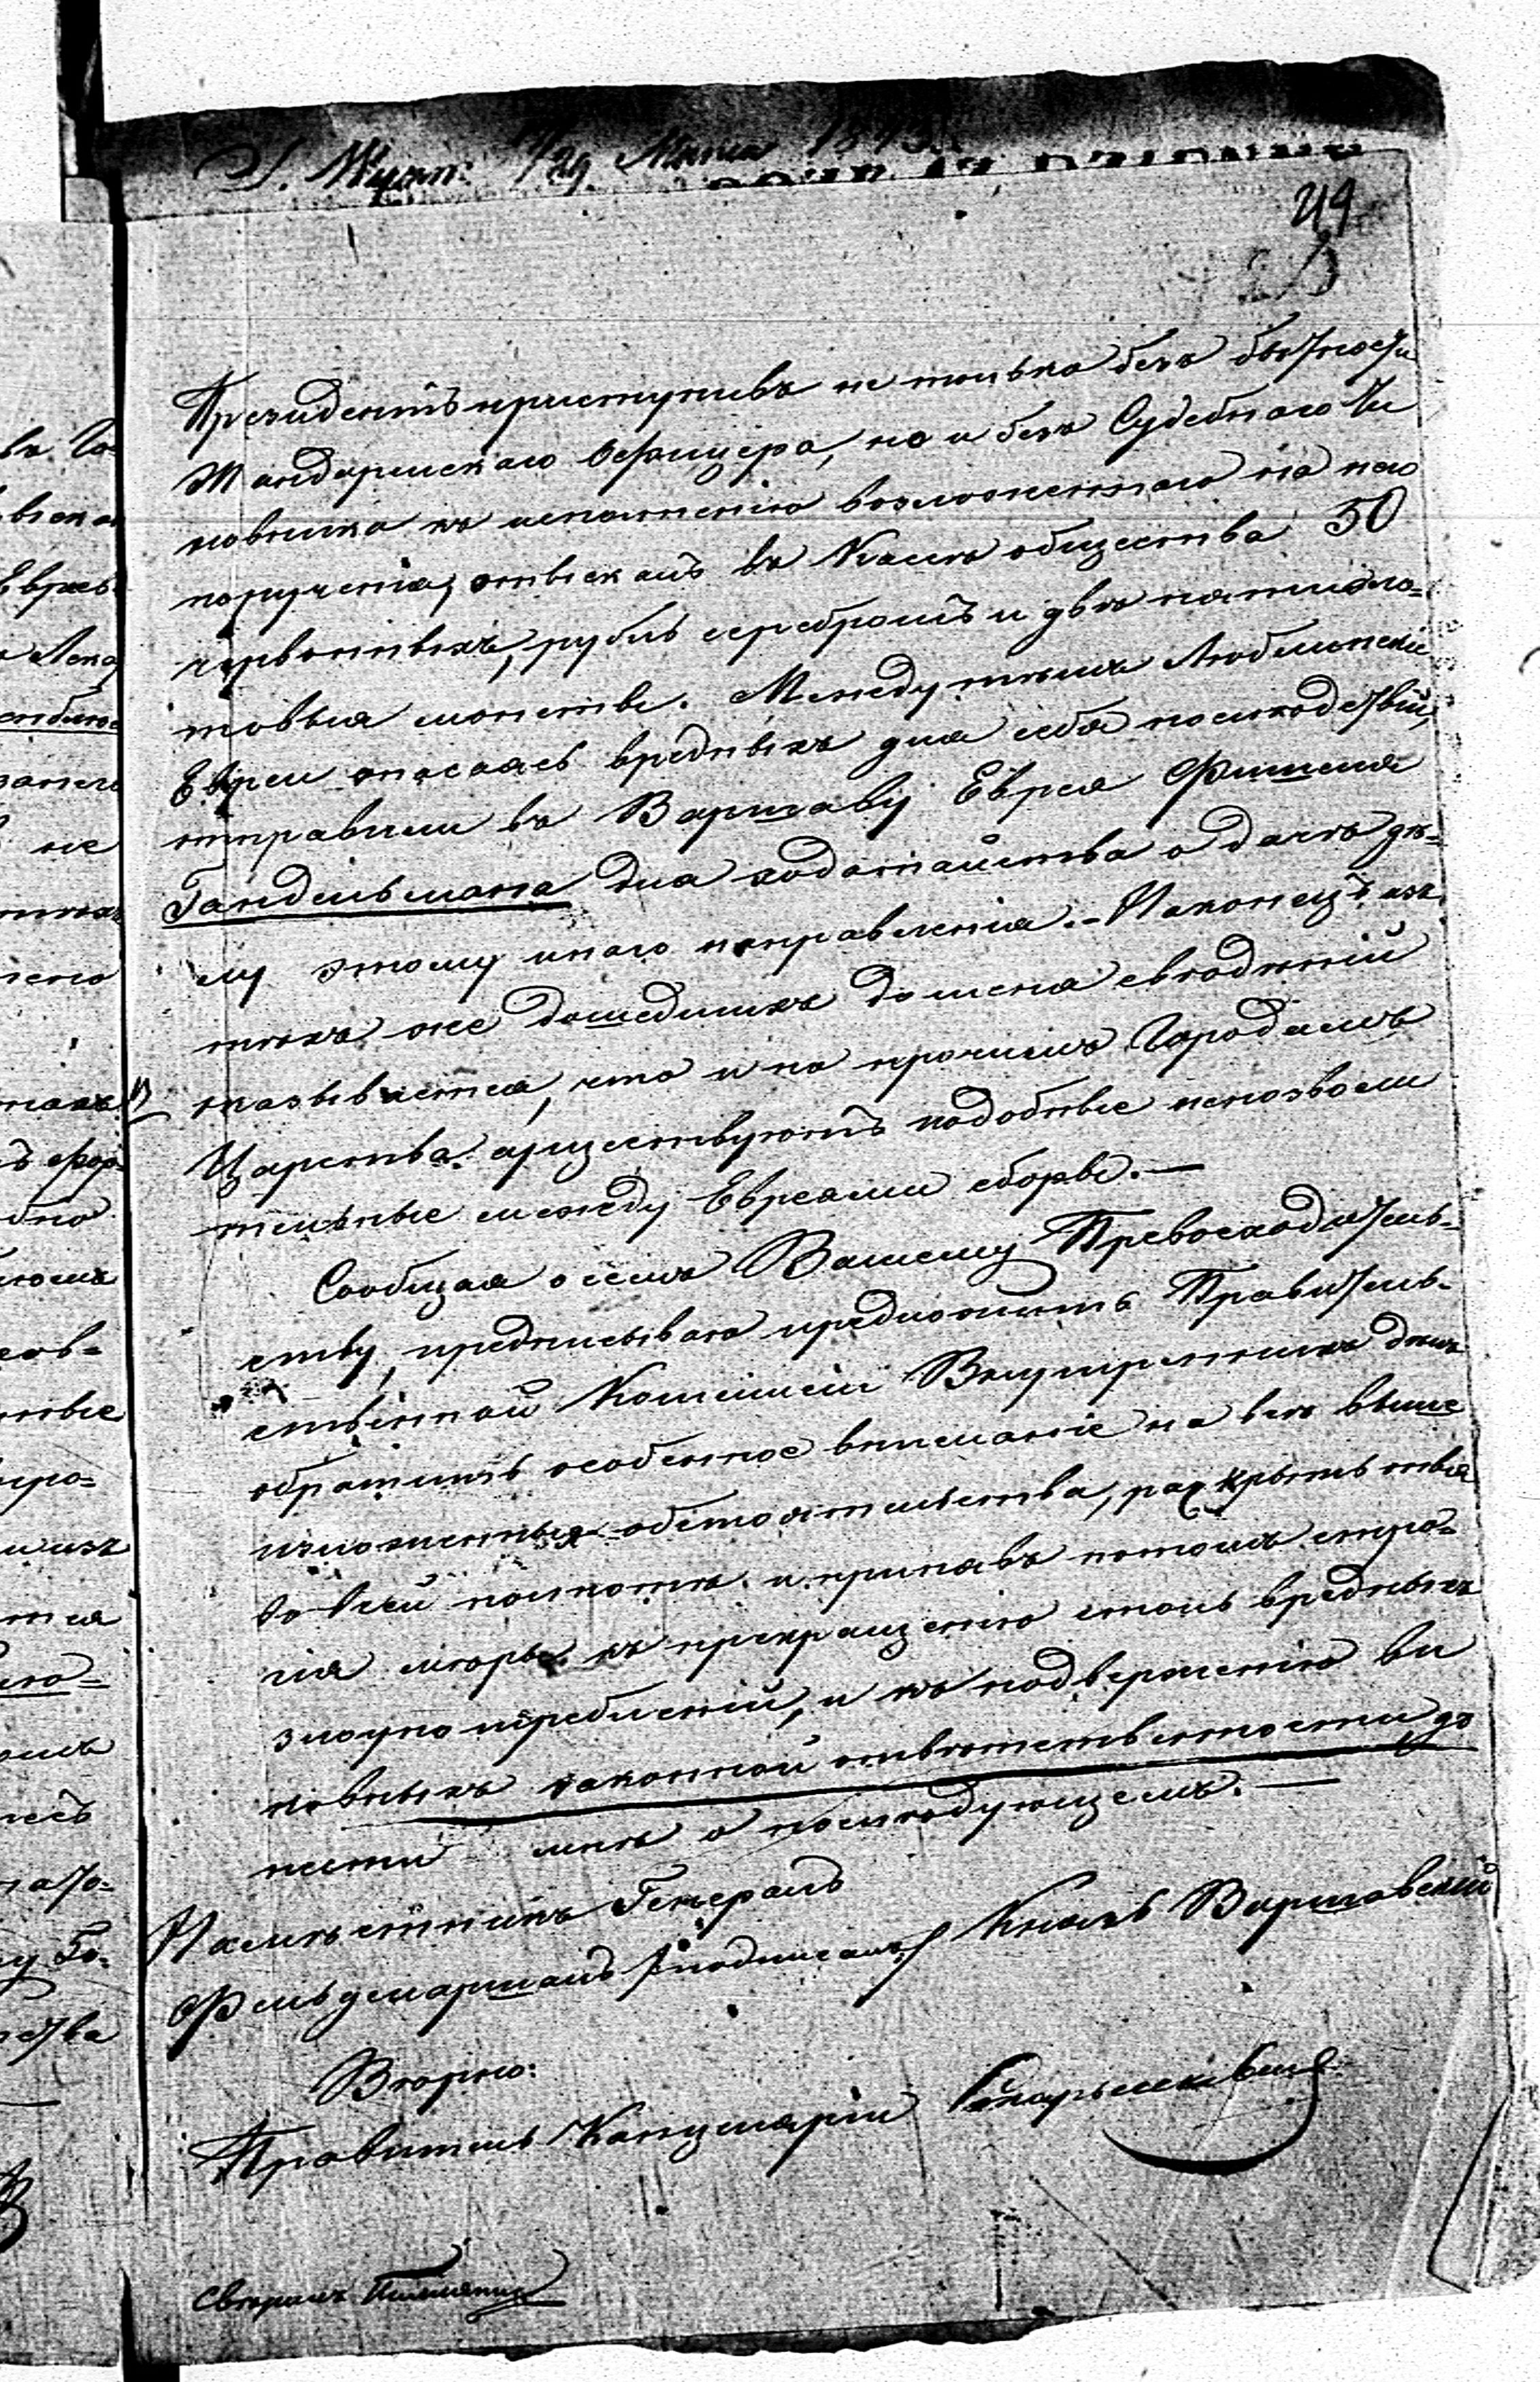 49
Президентъ приступивъ не только безъ бытности
Жандармскаго Офицера, но и безъ Судебнаго Чи
новника къ исполненію возложеннаго на него
порученія, отыскалъ въ Кассѣ общества 50
червонныхъ, рубль серебромъ и двѣ пятизло-
товыя монеты. Между тѣмъ Люблинскіе
Евреи опасаясь вредныхъ для себя послѣдствій,
отправили въ Варшаву Еврея Фишеля
Гандельмана для ходатайства о дачѣ дѣ-
лу этому инаго направленія. - Наконецъ изъ
тѣхъ же дошедшихъ до меня свѣдѣній
оказывается, что и по прочимъ Городамъ
Царства существуютъ подобные непозволи
тельные между Евреями сборы. —
Сообщая о семъ Вашему Превосходитель-
ству, предписываю предложить Правитель-
ственной Коммисіи Внутреннихъ дѣлъ
обратить особенное вниманіе на всѣ выше
изложенныя обстоятельства, раскрыть оныя
во всей полнотѣ и принявъ потомъ стро-
гія мѣры къ прекращенію столь вредныхъ
злоупотребленій, и къ подверженію ви
новныхъ законной отвѣтственности, до
нести мнѣ о послѣдующемъ. —
Намѣстникъ Генералъ
Фельдмаршалъ /подписалъ/ Князь Варшавскій
Вѣрно:
Правитель Канцеляріи
Свѣрялъ